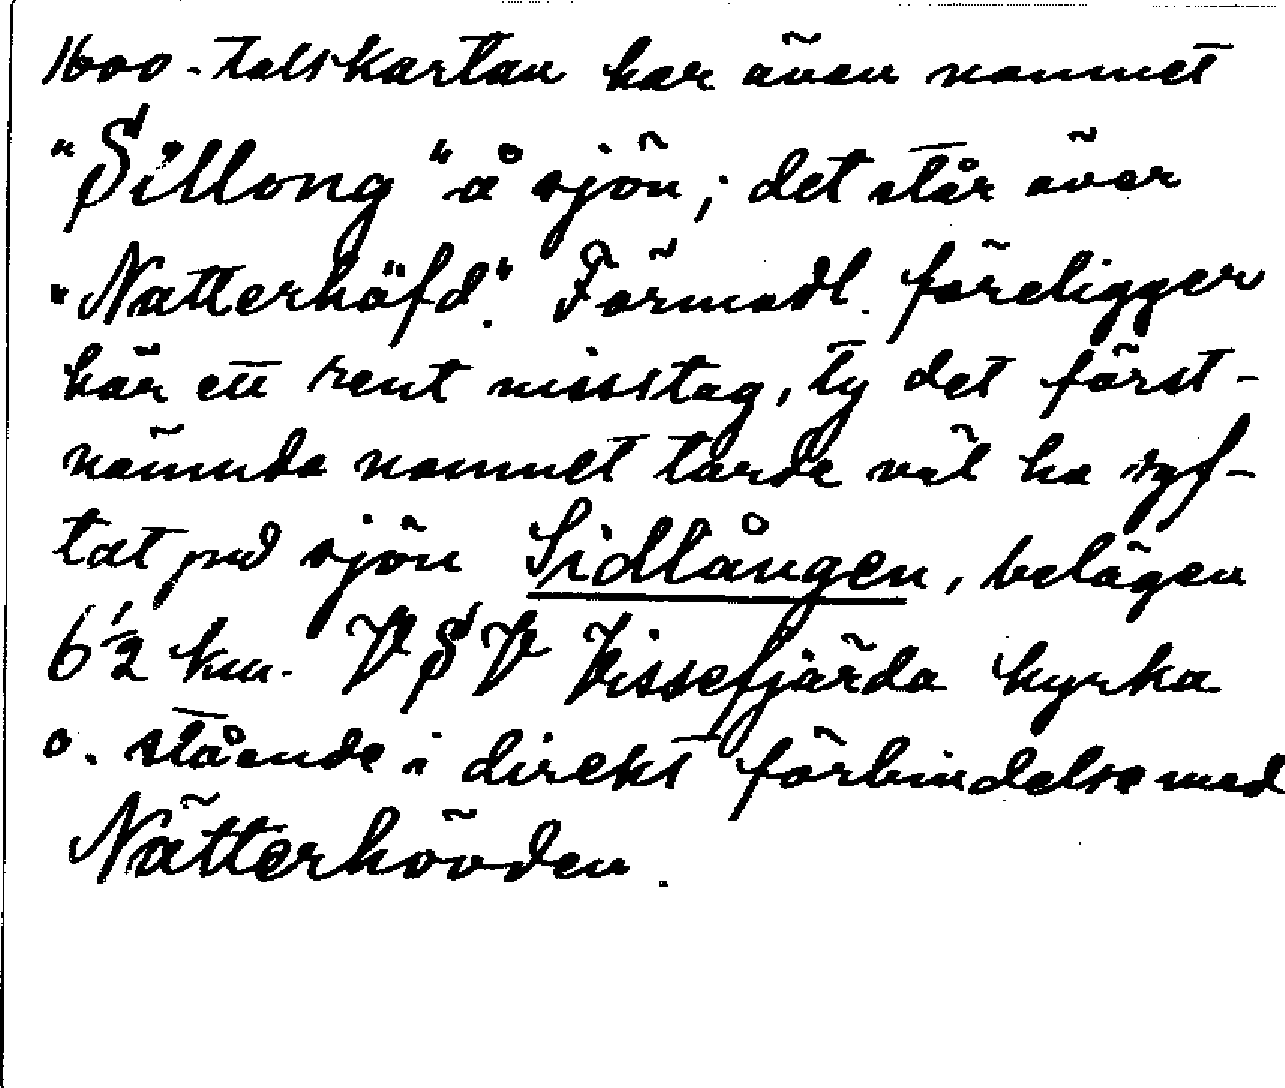 1600-talskartan har även namnet
"Sillong" å sjön; det står över
"Natterhöfd". Förmodl. föreligger
här ett rent misstag, ty det först-
nämnda namnet torde väl ha syf-
tat på sjön Sidlången, belägen
6½ km. VSV Vissefjärda kyrka
o. stående i direkt förbindelse med
Nätterhövden.